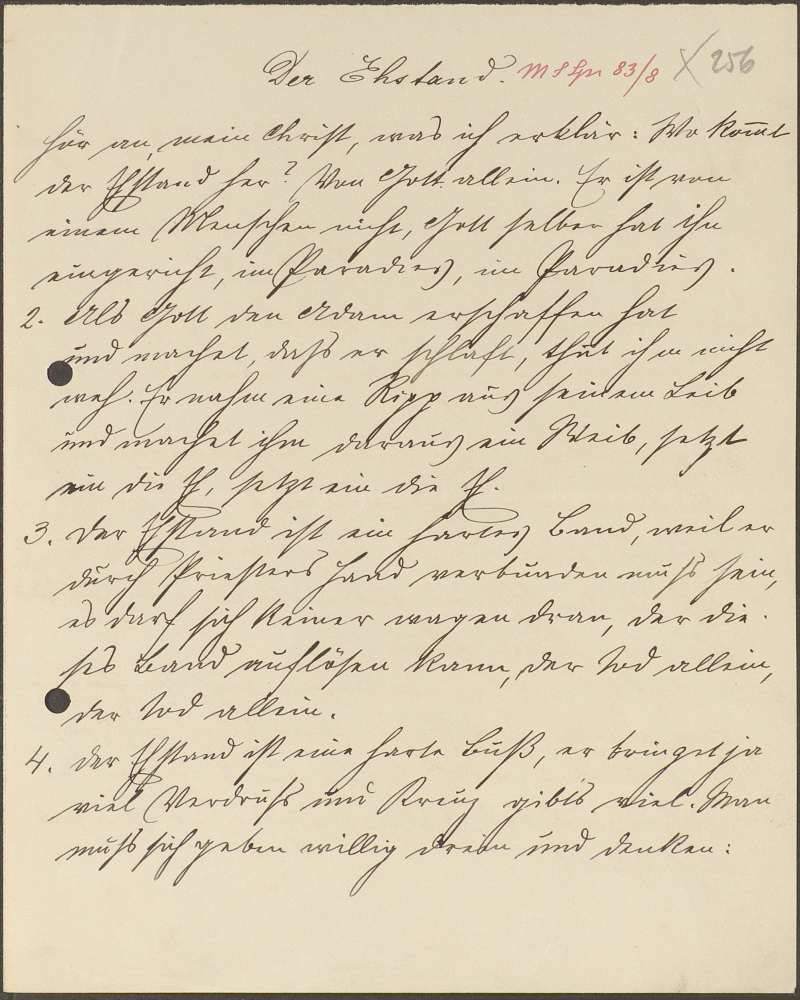 Der Ehstand. 83/8 256
Hör an, mein Christ, was ich erklär: Wo kom̄t
der Ehstand her? Von Gott allein. Er ist von
einem Menschen nicht, Gott selber hat ihn
eingericht, im Paradies, im Paradies.
2. Als Gott den Adam erschaffen hat
und machet, daß er schlaft, thut ihm nicht
weh. Er nahm eine Ripp aus seinem Leib
und machet ihm daraus ein Weib, setzt
ein die Eh, setzt ein die Eh.
3. Der Ehstand ist ein hartes Band, weil er
durch Priesters Hand verbunden muß sein,
es darf sich Keiner wagen dran, der die-
ses Band auflösen kann, der Tod allein,
der Tod allein.
4. Der Ehstand ist eine harte Buß, er bringet ja
viel Verdruß und Kreuz gibts viel. Man
muß sich geben willig drein und denken: